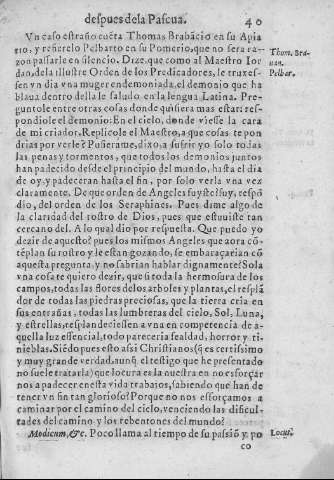 despues dela Pascua. 40
Vn caso estraño cuẽta Thomas Brabacio en su Apia
rio, y refierelo Pelbarto en su Pomerio, que no sera ra-
zon passarle en silencio. Dize, que como al Maestro Ior
dan, dela illustre Orden de los Predicadores, le truxes-
sen vn dia vna muger endemoniada, el demonio que ha
blaua dentro della le saludo en la lengua Latina. Pre-
guntole entre otras cosas donde quisiera mas estar: res-
pondiole el demonio: En el cielo, donde viesse la cara
de mi criador. Replicole el Maestro, a que cosas te pon
drias por verle? Pusierame, dixo, a sufrir yo solo todas
las penas y tormentos, que todos los demonios juntos
han padecido desde el principio del mundo, hasta el dia
de oy, y padecerã hasta el fin, por solo verla vna vez
claramente. De que orden de Angeles fuyste? fuy, respõ
dio, del orden de los Seraphines. Pues dime algo de
la claridad del rostro de Dios, pues que estuuiste tan
cercano del. A lo qual dio por respuesta. Que puedo yo
dezir de aquesto? pues los mismos Angeles que aora cõ-
tẽplan su rostro y le estan gozando, se embaraçarian cõ
aquesta pregunta, y no sabrian hablar dignamente? Sola
vna cosa te quiero dezir, que si toda la hermosura de los
campos, todas las flores delos arboles y plantas, el resplã
dor de todas las piedras preciosas, que la tierra cria en
sus entrañas, todas las lumbreras del cielo, Sol, Luna,
y estrellas, resplandeciessen a vna en competencia de a-
quella luz essencial, todo pareceria sealdad, horror y ti-
nieblas. Siẽdo pues esto assi Christianos (q̃ es certissimo
y muy grande verdad, aunq̃ el testigo que he presentado
no suele tratarla) que locura es la nuestra en no esforçar
nos a padecer en esta vida trabajos, sabiendo que han de
tener vn fin tan glorioso? Porque no nos esforçamos a
caminar por el camino del cielo, venciendo las dificul-
tades del camino y los rebentones del mundo?
Modicum, &c. Poco llama al tiempo de su passiõ, y po
co
Thom. Bra-
uan.
Pelbar.
Locus.